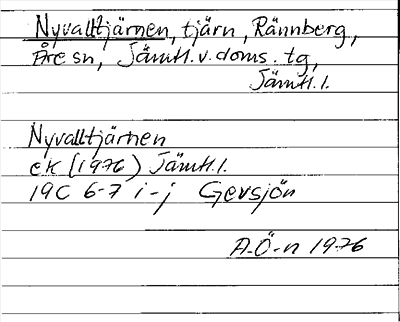 Nyvalltjärnen, tjärn, Rännberg,
Åre sn, Jämtl.v.doms.tg,
Jämtl.l.
Nyvalltjärnen
ek (1976) Jämtl.l.
19C 6-7 i-j Gevsjön
A-Ö-n 1976